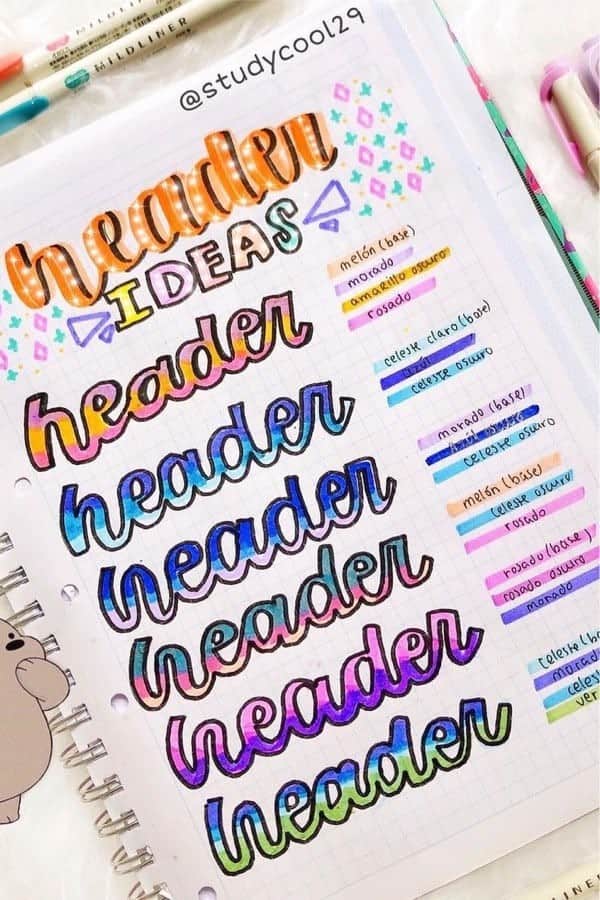 MILDLINER
MILDLINER
@studycool29
header
IDEAS
header
melón (base)
morado
amarillo oscuro
rosado
header
celeste claro (base)
azúl
celeste oscuro
header
morado (base)
azúl oscuro
celeste oscuro
header
melón (base)
celeste oscuro
rosado
header
rosado (base)
rosado oscuro
morado
header
celeste (ba
morad
celest
ver
MILDLINER